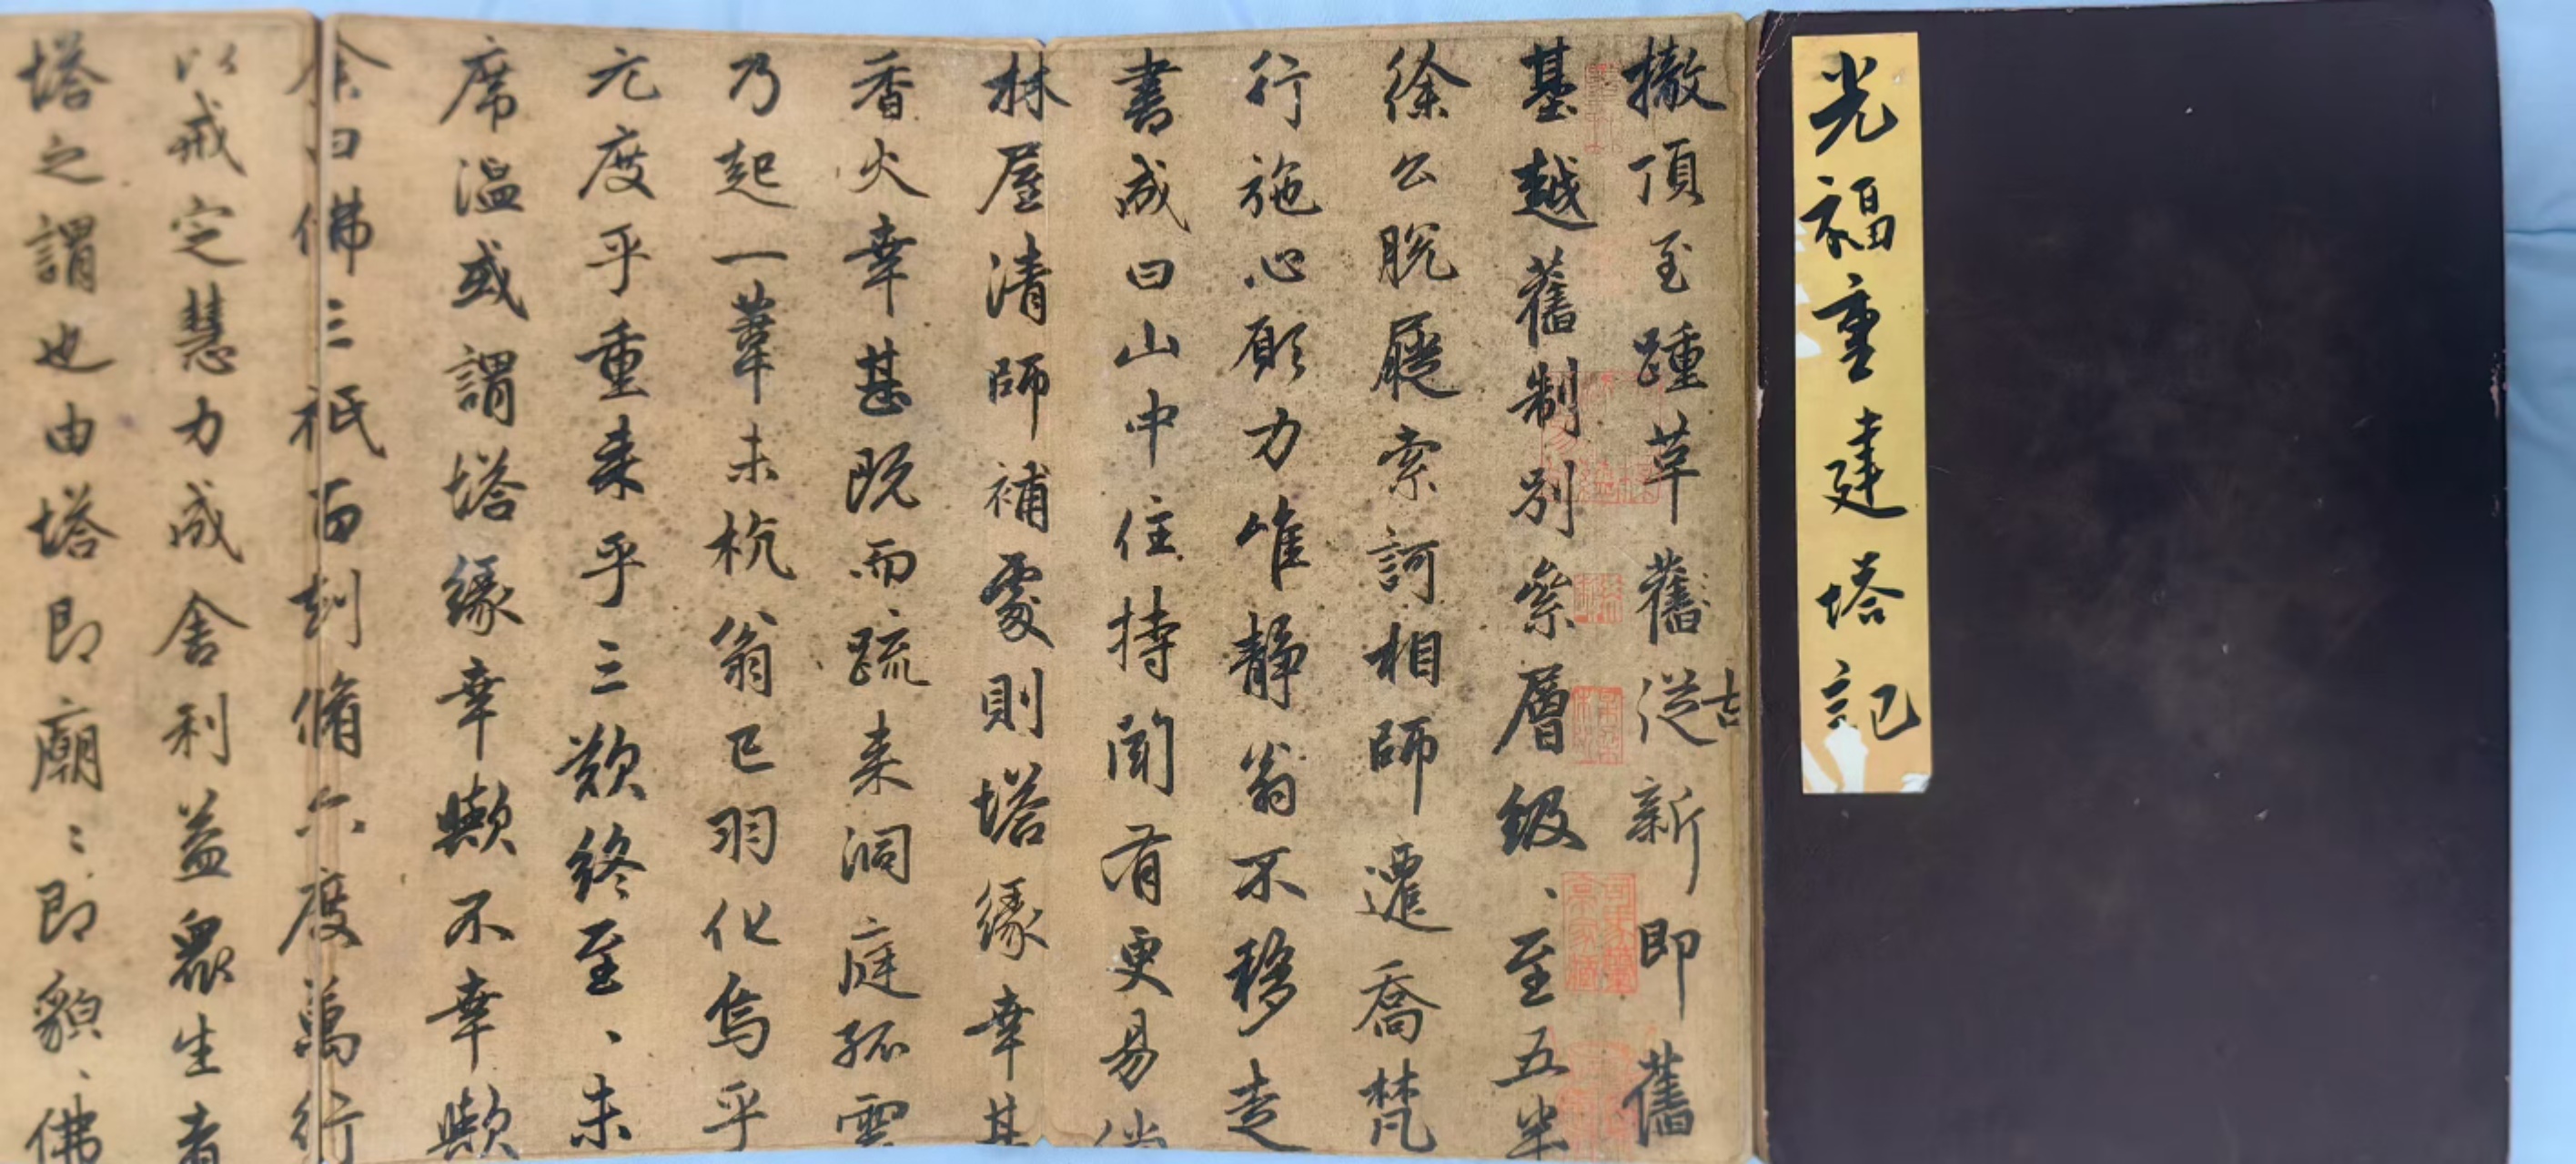 光福重建塔記
撤頂至踵革舊從古新即舊
基越舊制別參層級、至五半
徐公脫屣索訶相師遷喬梵
行施心願力唯靜翁不移走
書成曰山中住持聞有更易倘
林屋清師補處則塔緣幸甚
香火幸甚既而疏来洞庭孤雲
乃起一葦未杭翁已羽化焉乎
元度乎重来乎三歎終至、未
席温或謂塔緣幸歟不幸歟
余曰佛三祇百刦脩六度萬行
以戒定慧力成舍利益眾生者
塔之謂也由塔即廟〻即貌、佛